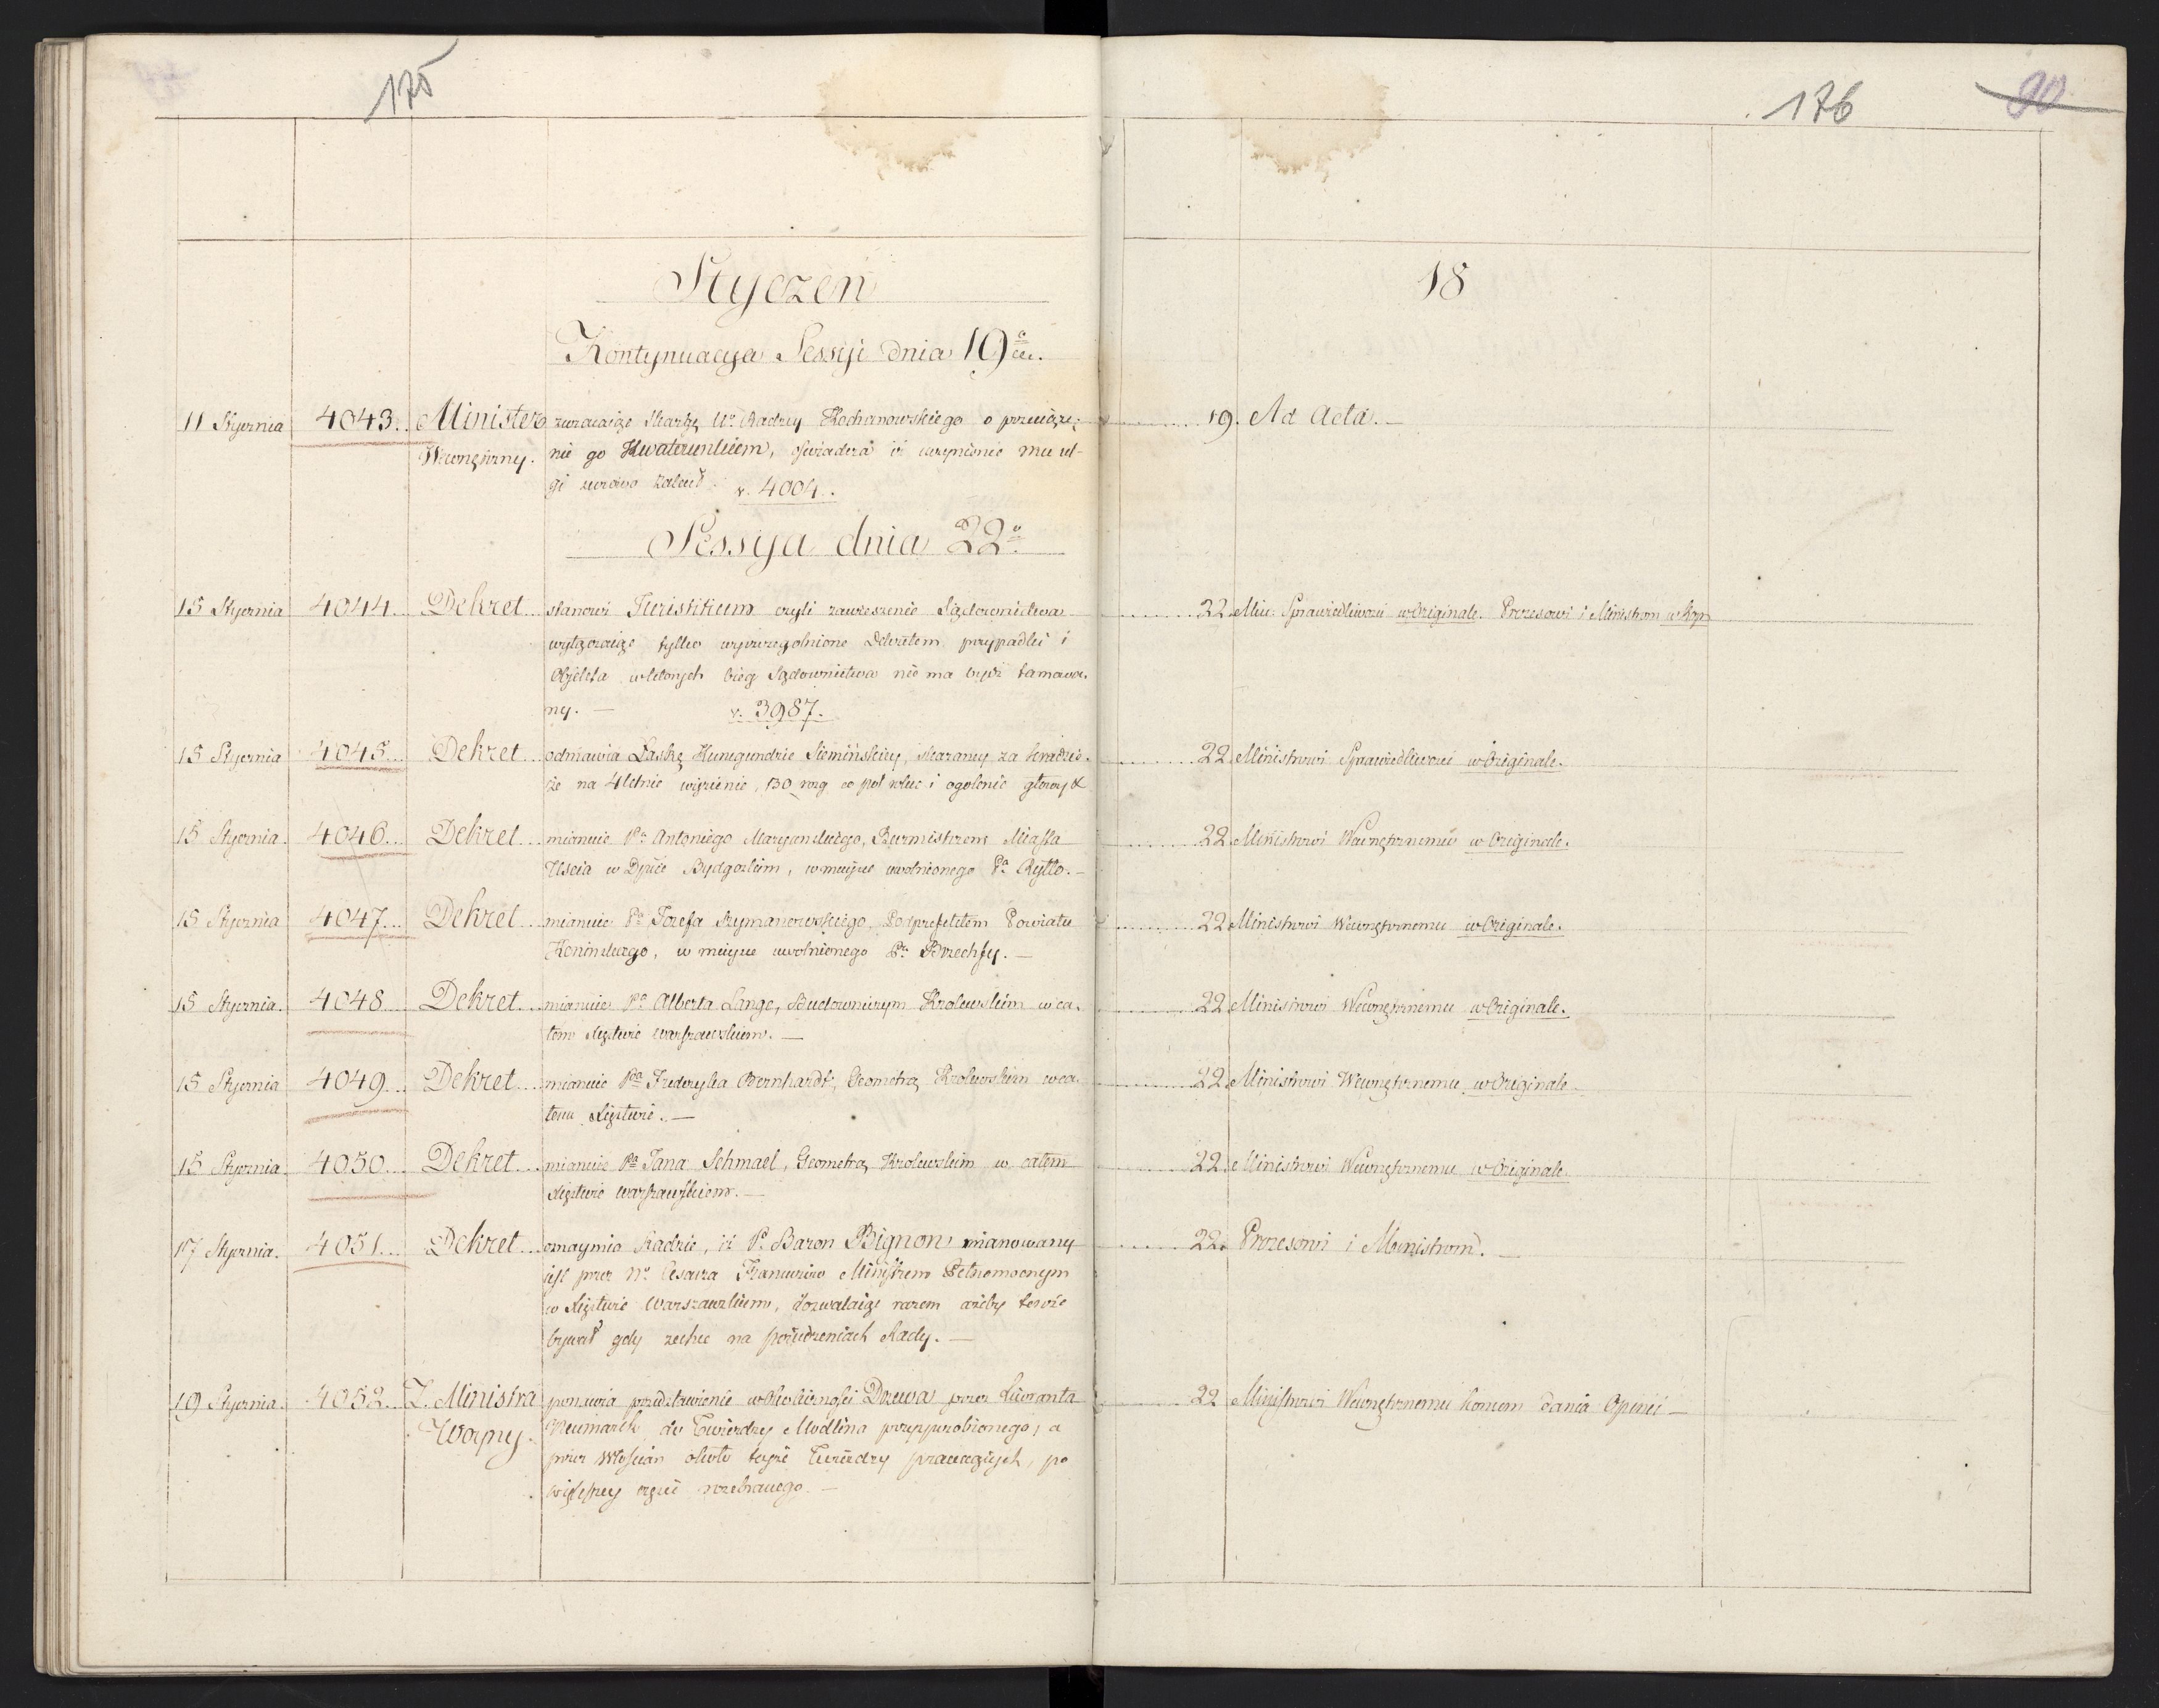 175
Styczeń
Kontynuacya Sessyi dnia 19
11 Stycznia 4043. Minister zwracaiąc skargę Ur. Radzcy Kochanowskiego o przeciąże-
Wewnętrzny. nie go Kwaterunkiem, oświadcza iż uczynienie mu ul-
gi zaraz zalecił v. 4004.
Sessya dnia 22
15 Stycznia 4044. Dekret stanowi Juristitium czyli zawieszenie Sądownictwa
wyłączaiąc tylko wyszczególnione Dekretem przypadki i
Objekta w których bieg Sądownictwa nie ma bydź tamowa-
ny. — v. 3987.
15 Stycznia 4045. Dekret odmawia Łaskę Kunegundzie Siemińskiey, skazaney za kradzie-
że na 4letnie więzienie, 130 rózg co pół roku i ogolenie głowy &
15 Stycznia 4046. Dekret mianuie Pa Antoniego Maryanskiego, Burmistrzem Miasta
Uscia w Dpcie Bydgoskim, w mieysce uwolnionego Pa Rytto. —
15 Stycznia 4047. Dekret mianuie Pa Jozefa Szymanowskiego, Podprefektem Powiatu
Koninskiego, w mieysce uwolnionego Pa Brechfy. —
15 Stycznia 4048 Dekret mianuie Pa Alberta Lange, Budowniczym Krolewskim w ca-
łem Xięstwie Warszawskiem. —
15 Stycznia 4049. Dekret mianuie Pa Fryderyka Bernhardt, Geometrą Krolewskim w ca-
łem Xięstwie. —
15 Stycznia 4050. Dekret mianuie Pa Jana Schmael, Geometrą Krolewskim w całem
Xięstwie Warszawskiem. —
17 Stycznia. 4051. Dekret oznaymia Radzie, iż P. Baron Bignon mianowany
iest przez N. Cesarza Francuzow Ministrem Pełnomocnym
w Xięstwie Warszawskiem, dozwalaiąc razem ażeby tenże
bywał gdy zechce na posiedzeniach Rady. —
19 Stycznia. 4052. Z. Ministra ponawia przedstawienie w okoliczności Drzewa przez Liweranta
Woyny. Neumark do Twierdzy Modlina przysposobionego, a
przez Włościan około teyże Twierdzy pracuiących, po
większey części rozebranego —
176 90
18
19. Ad Acta. —
22 Min: Sprawiedliwosci w Originale. Prezesowi i Ministrom w Kop
22 Ministrowi Sprawiedliwosci w Originale.
22 Ministrowi Wewnętrznemu w Originale.
22 Ministrowi Wewnętrznemu w Originale.
22 Ministrowi Wewnętrznemu w Originale.
22 Ministrowi Wewnętrznemu w Originale.
22. Ministrowi Wewnętrznemu w Originale.
22. Prezesowi i Ministrom. —
22 Ministrowi Wewnętrznemu koncem dania Opinii —